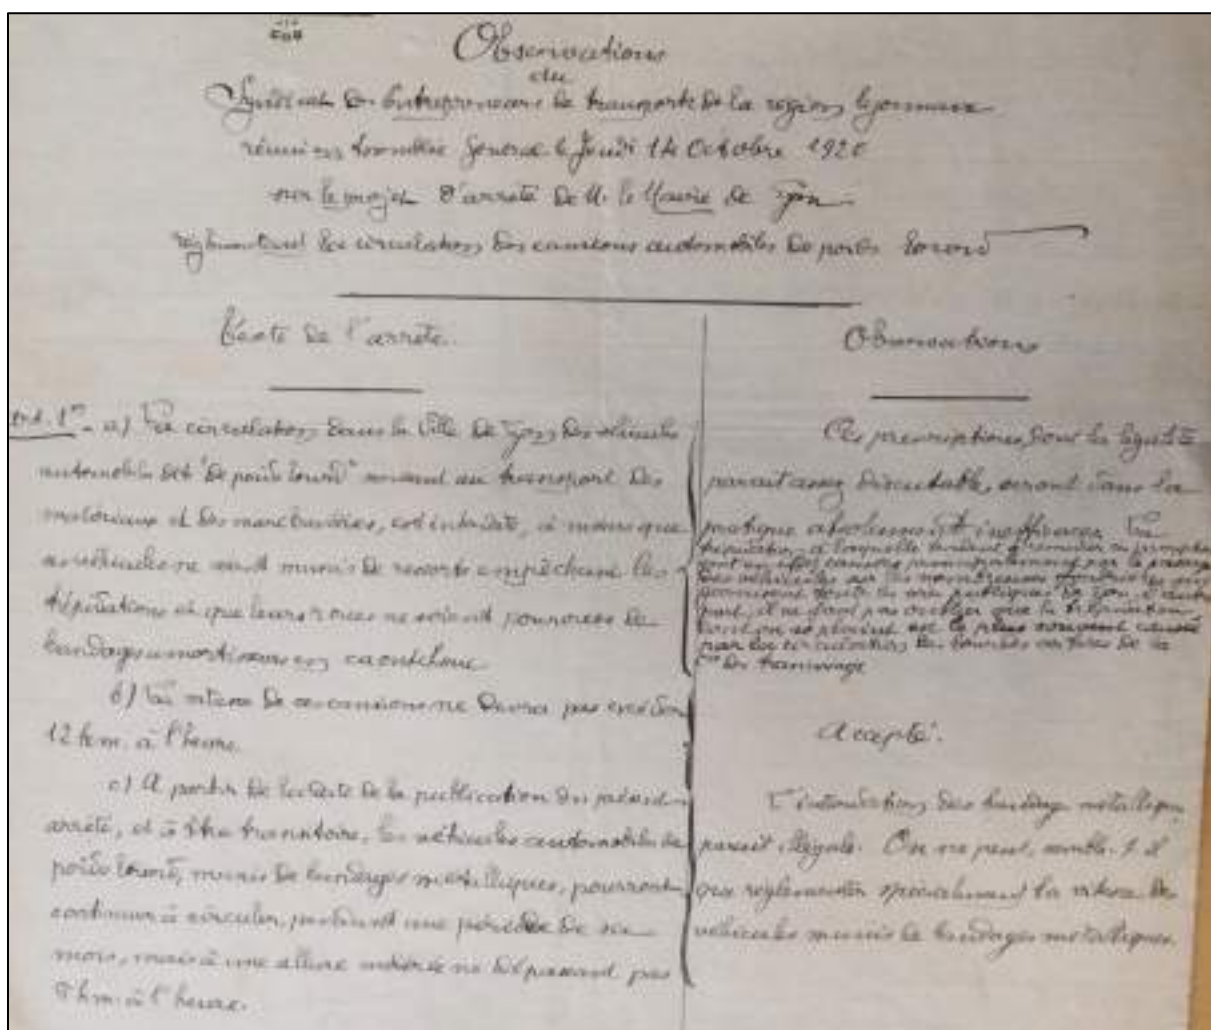 Observations
du
Syndicat des Entrepreneurs de transports de la région lyonnaise
réuni en Assemblée Générale le Jeudi 14 Octobre 1920
sur le projet d'arrêté de M. le Maire de Lyon
réglementant la circulation des camions automobiles de poids lourd
Texte de l'arrêté.
Art. 1er - a) La circulation dans la Ville de Lyon des véhicules
automobiles dits "de poids lourd" servant au transport des
matériaux et des marchandises, est interdite, à moins que
ces véhicules ne soient munis de ressorts empêchant les
trépidations et que leurs roues ne soient pourvues de
bandages amortisseurs en caoutchouc
b) La vitesse de ces camions ne devra pas excéder
12 km. à l'heure.
c) A partir de la date de la publication du présent
arrêté, et à titre transitoire, les véhicules automobiles de
poids lourd, munis de bandages métalliques, pourront
continuer à circuler, pendant une période de six
mois, mais à une allure modérée ne dépassant pas
km. à l'heure.
Observations
Ces prescriptions, dont la légalité
parait assez discutable, seront dans la
pratique absolument inefficaces. La
trépidation à laquelle tendent à remédier
sont en effet causées par le passage
des véhicules sur les nombreuses
les voies publiques de Lyon. D'autre
part, il ne faut pas oublier que la trépidation
dont on se plaint est le plus souvent causée
par la circulation des lourdes voitures de la
Cie des tramways
Accepté.
L'interdiction des bandages métalliques
parait illégale. On ne peut, semble-t-il
que réglementer spécialement la vitesse des
véhicules munis de bandages métalliques.